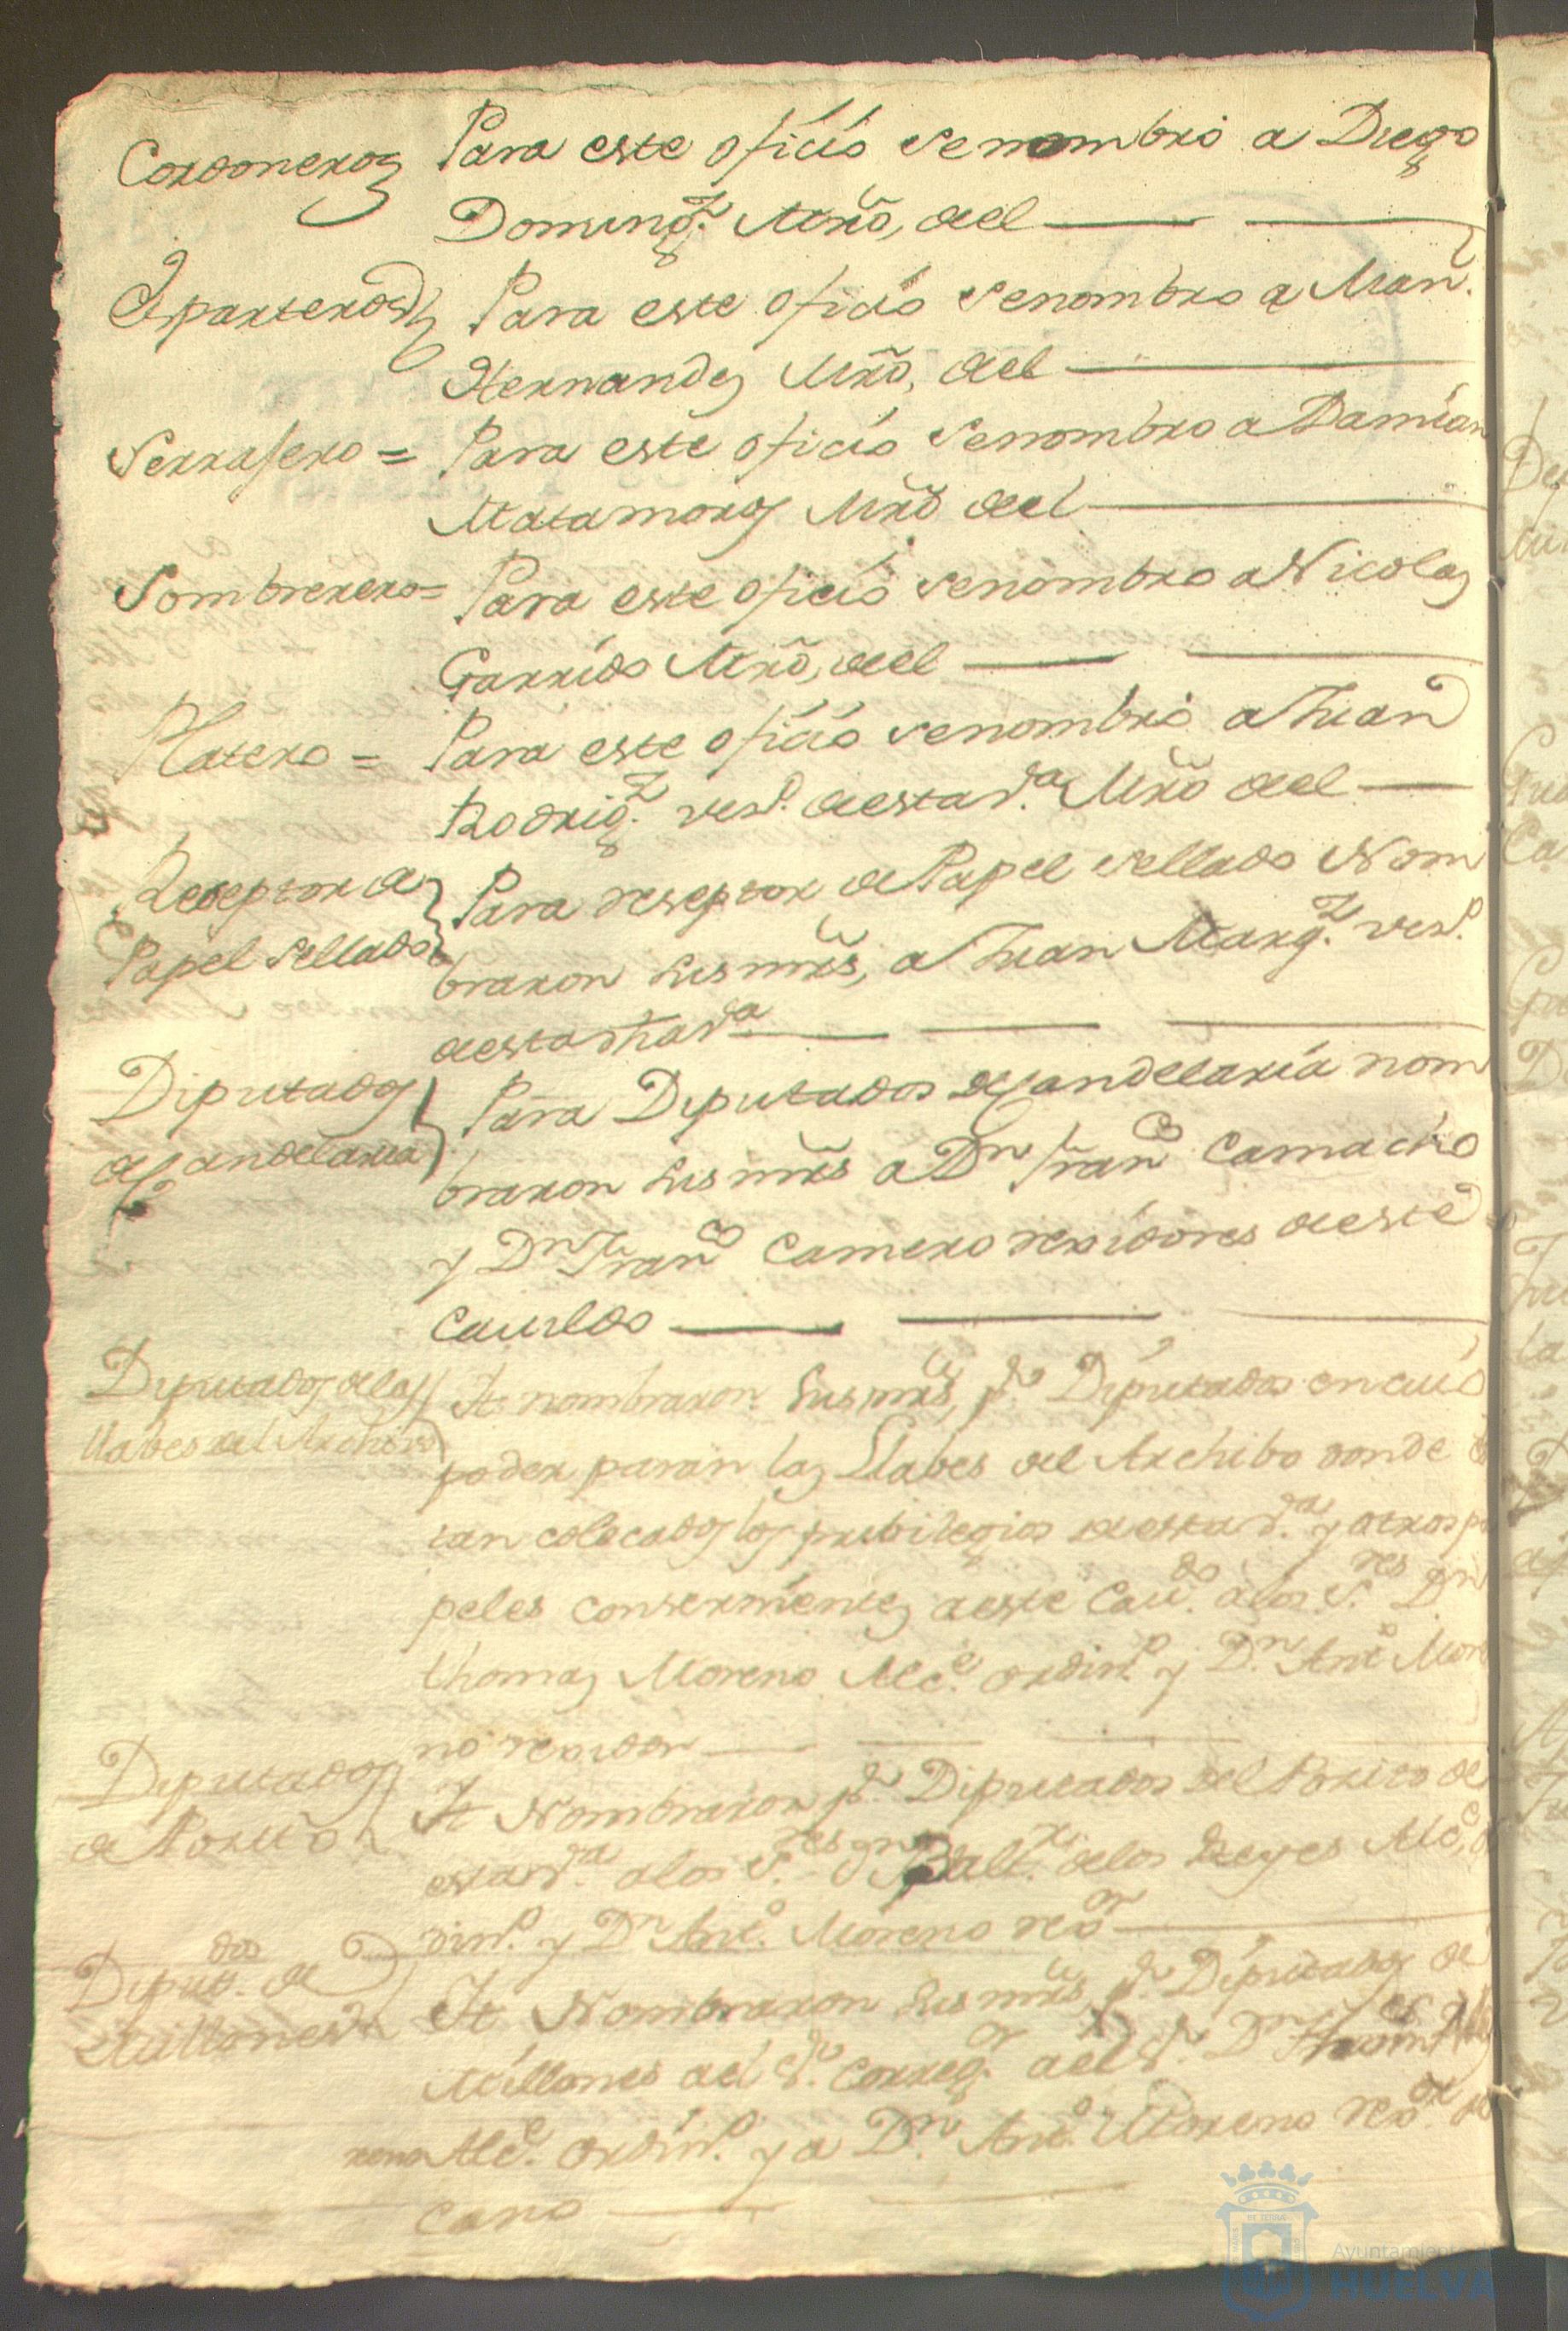 Cordoneros Para este oficio senombró a Diego
Doming.z Mrõ, del
Esparteros Para este oficio senombro a Man.l
Hernandes Mrõ, del
Serrasero = Para este oficio senombro a Damian
Matamoros Mrõ del
Sombrerero = Para este oficio senombro a Nicolas
Garrido Mrõ, del
Platero = Para este oficio senombró a Juan
Rodrig.z vesº. de esta v.a Mrõ del
Reseptor de Para reseptor de Papel sellado Nom
Papel sellado braron sus mrs, a Juan Marq.z vesº.
de esta dha v.a
Diputados Para Diputados de Candelaria nom
de Candelaria braron sus mrs a Dn Franco Camacho
y Dn Franco Camero rexidores de este
Cauildo
Diputados de las It nombraron sus mrs, p.a Diputados en cuio
llabes del Archivo poder paran las Llabes del Archibo donde es
tan colocados los pribilegios de esta v.a y otros pa
peles consernientes a este Cau.do a los S.res Dn
thomas Moreno Alc.e ordinº. y D.n Antº More
no rexidor
Diputados It Nombraron p.a Diputados del Posito de
de Posito esta v.a a los S.res Dn Balt.r de los Reyes Alc.e or
dinº. y Dn Antº. Moreno rexor
Diput.dos de It Nombraron sus mrs, p.a Diputados de
Millones Millones al S.r Correg.or al S.r Dn
Alc.e ordinº. y a Dn Antº. Moreno rexor
cano
Ayuntamiento de
HUELVA